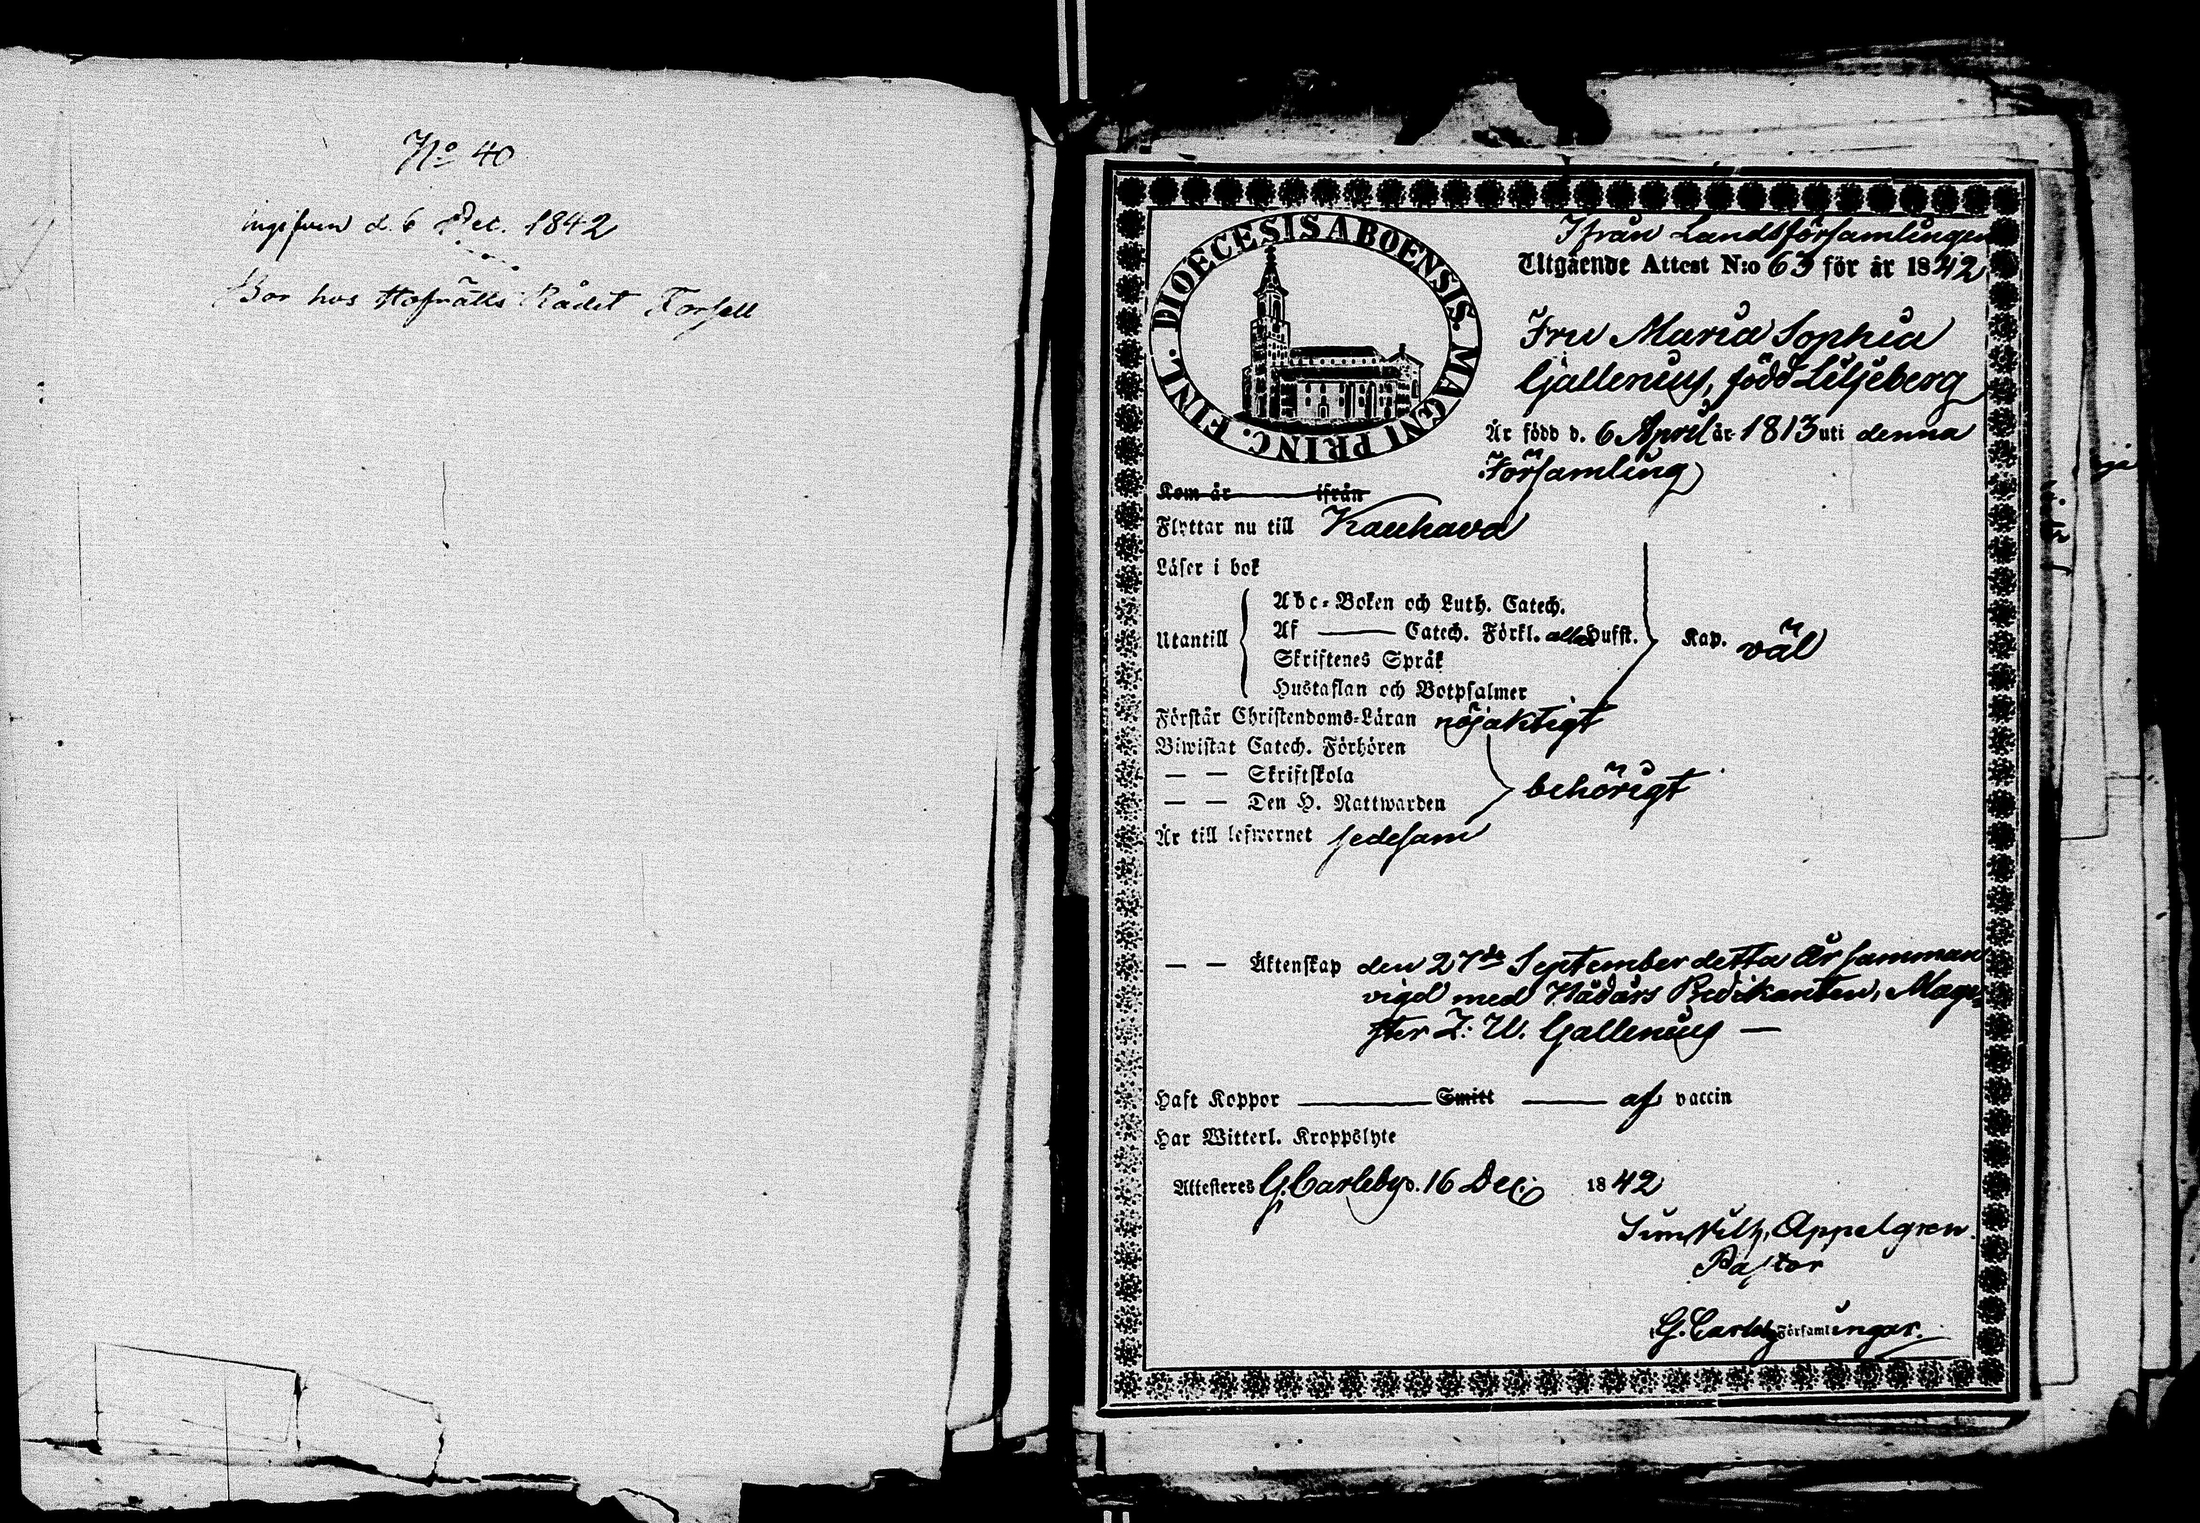 No 40
Ingifven d. 6 Dec. 1842
Bor hos Hofrätts Rådet Forsell
DIOECESIS ABOENSIS. MAGNI PRINC. FINL.
Ifrån Landsförsamlingen
Utgående Attest N:o 63 för år 1842
Fru Maria Sophia
Gallenius, född Liljeberg
Är född d. 6 April år 1813 uti denna
Församling
Kom år ifrån
Flyttar nu till Kauhava
Läser i bok
Utantill
Abc-Boken och Luth. Catech.
Af —— Catech. Förkl. alla Hufst.
Skriftenes Språk
Hustaflan och Botpsalmer
Kap. väl
Förstår Christendoms-Läran nöjaktigt
Biwistat Catech. Förhören
— — Skriftskola
— — Den H. Nattwarden
behörigt
Är till lefwernet sedesam
— — Äktenskap den 27de September detta År samman
vigd med Nådårs Predikanten, Magi-
ster Z: U. Gallenius —
Haft Koppor —— Smitt —— af vaccin
Har Witterl. Kroppslyte
Attesteras G. Carleby d. 16 Dec. 1842
Appelgren.
Pastor
G. Carleby Församlingar.